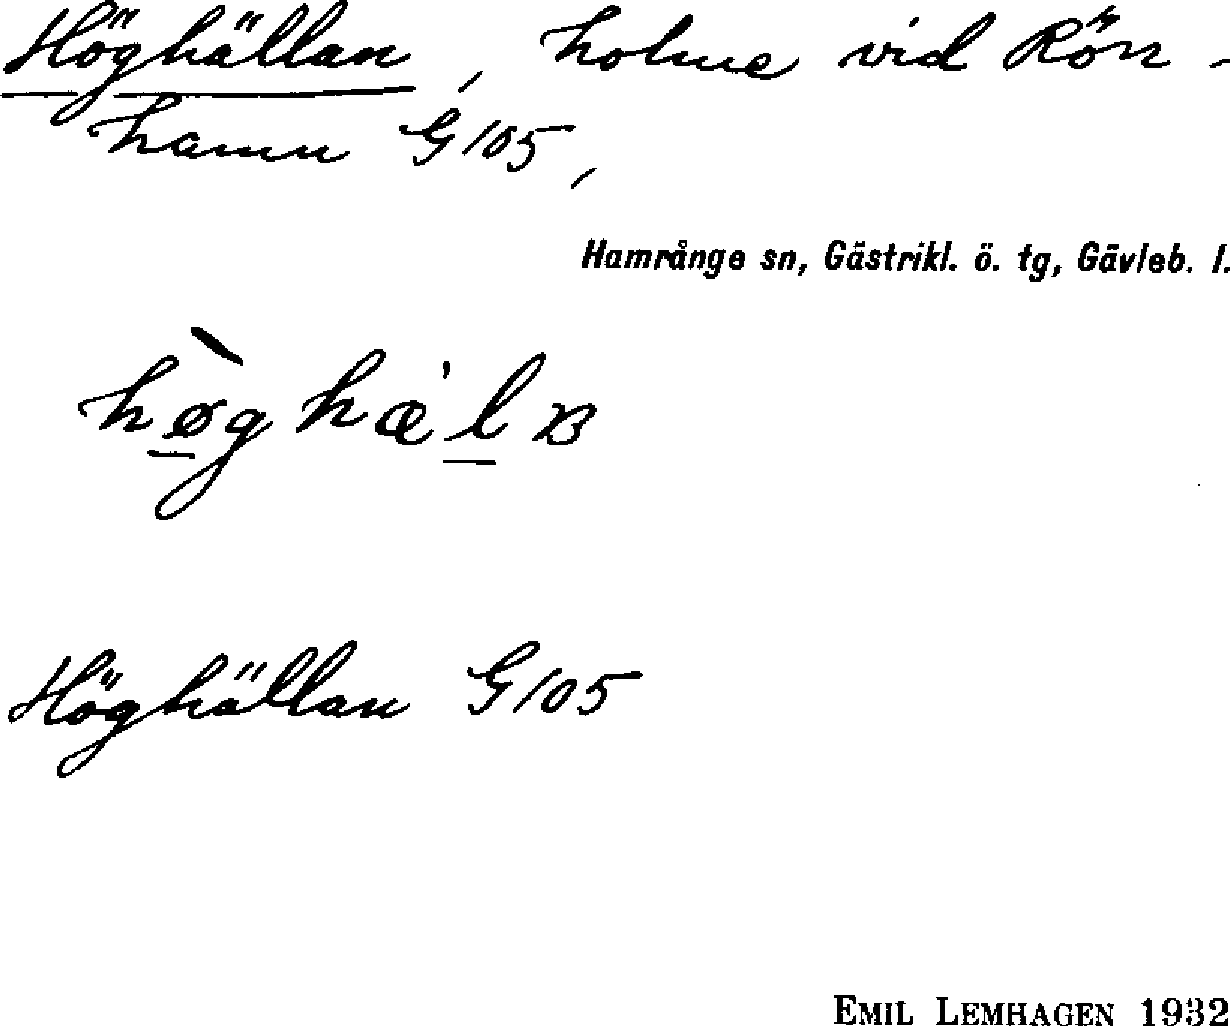 Höghällan, holme vid Rön-
hamn G105,
Hamrånge sn, Gästrikl. ö. tg, Gävleb. l.
hø̱̀ghæ'ḻʙ
Höghällan G105
EMIL LEMHAGEN 1932